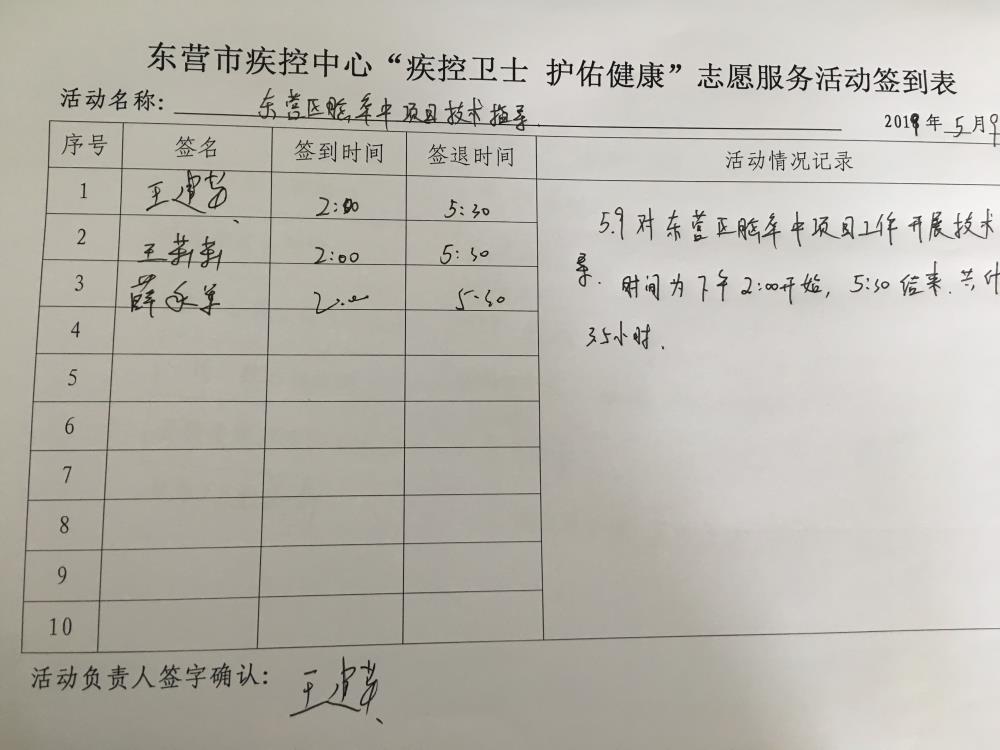 东营市疾控中心“疾控卫士 护佑健康”志愿服务活动签到表
活动名称: 东营区脑卒中项目技术指导.
2019年 5月9
序号 签名 签到时间 签退时间 活动情况记录
1 王建 2:00 5:30
2 王 2:00 5:30
3 薛永 2:00 5:30
4
5
6
7
8
9
10
5.9对东营区脑卒中项目工作开展技术
导. 时间为下午2:00开始, 5:30结束.共计
3.5小时.
活动负责人签字确认: 王建